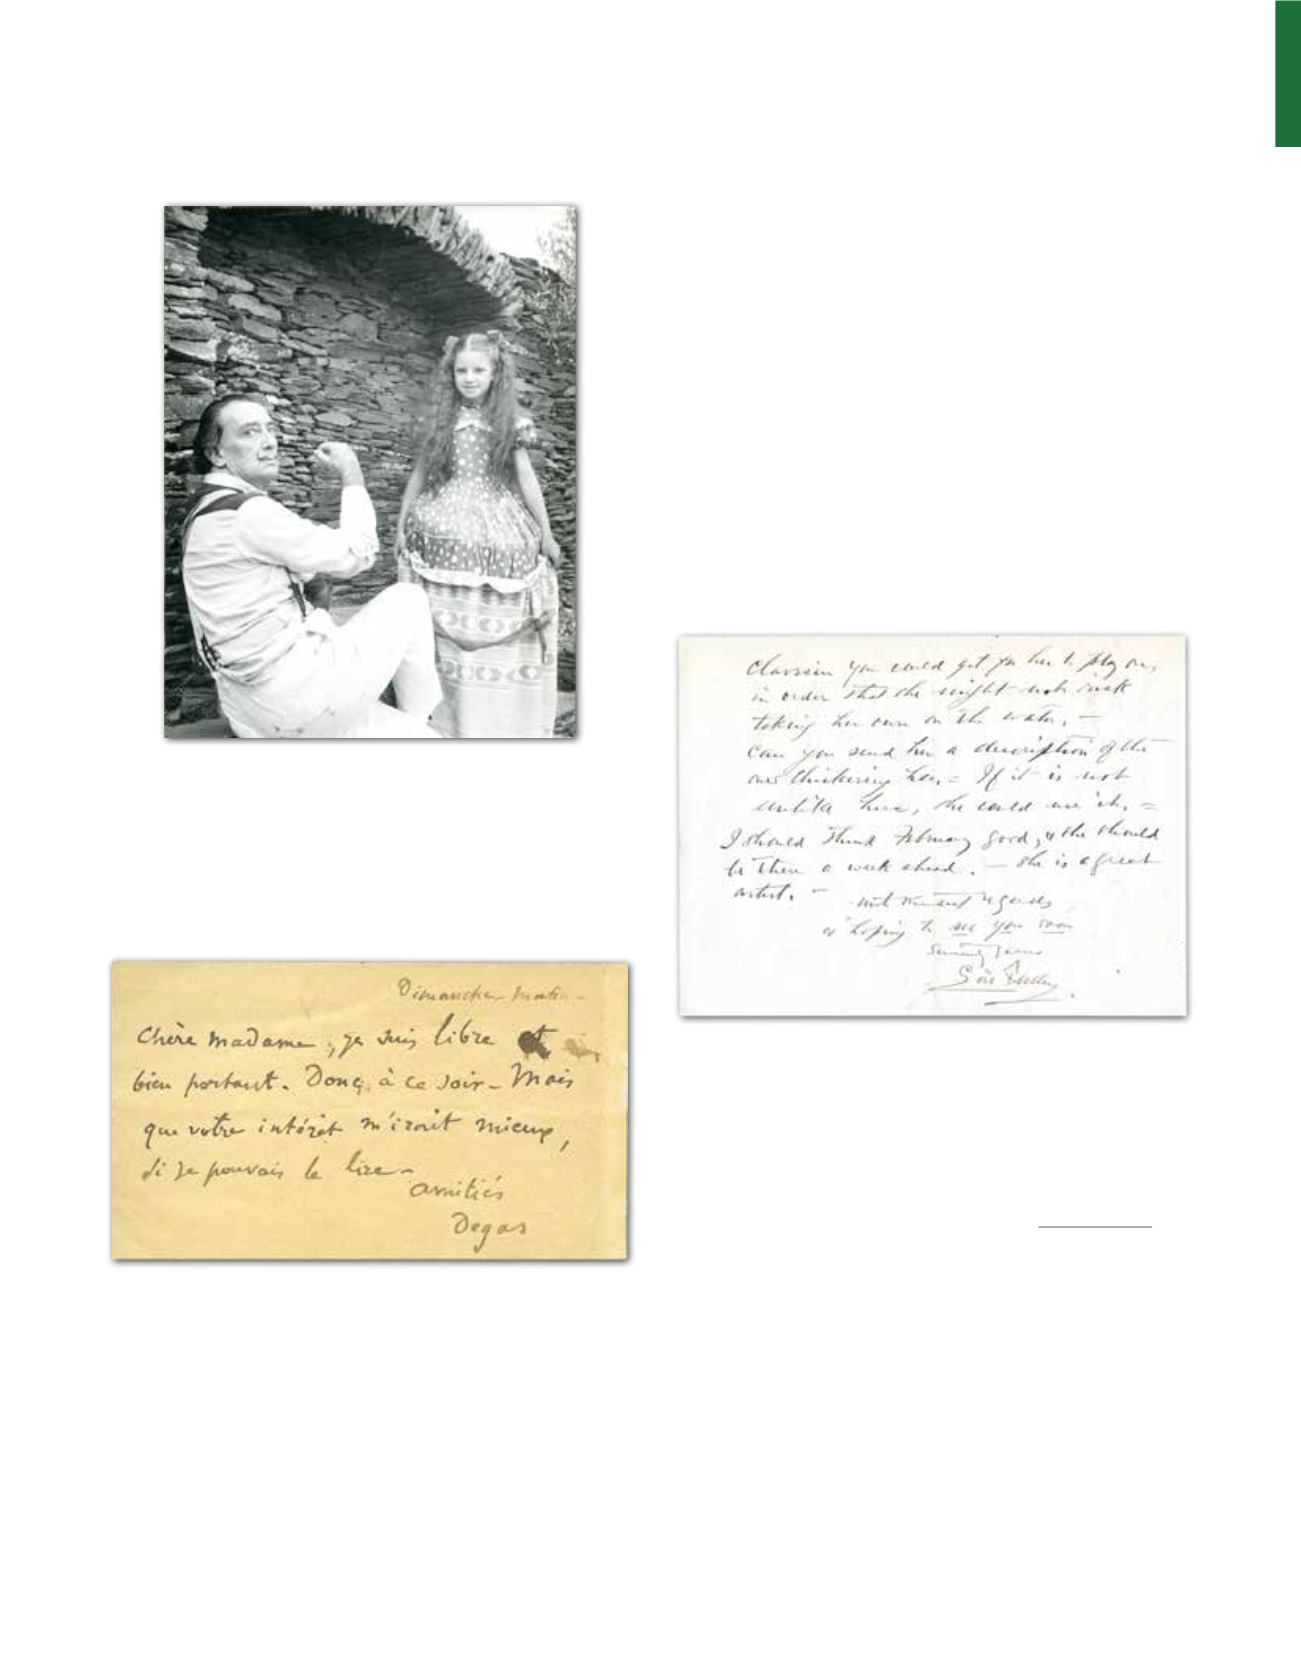 Dimanche matin -
Chère madame, je suis libre et
bien portant. Donc, à ce soir - Mais
que votre intérêt m'irait mieux,
si je pouvais le lire -
amitiés
Degas
you could get for her to play on,
in order that she might not risk
taking her own on the water. -
Can you send her a description of the
one Chickering has. = If it is not
unlike hers, she could use it. =
I should think February good, & she should
be there a week ahead. - She is a great
artist. -
with kindest regards
& hoping to see you soon